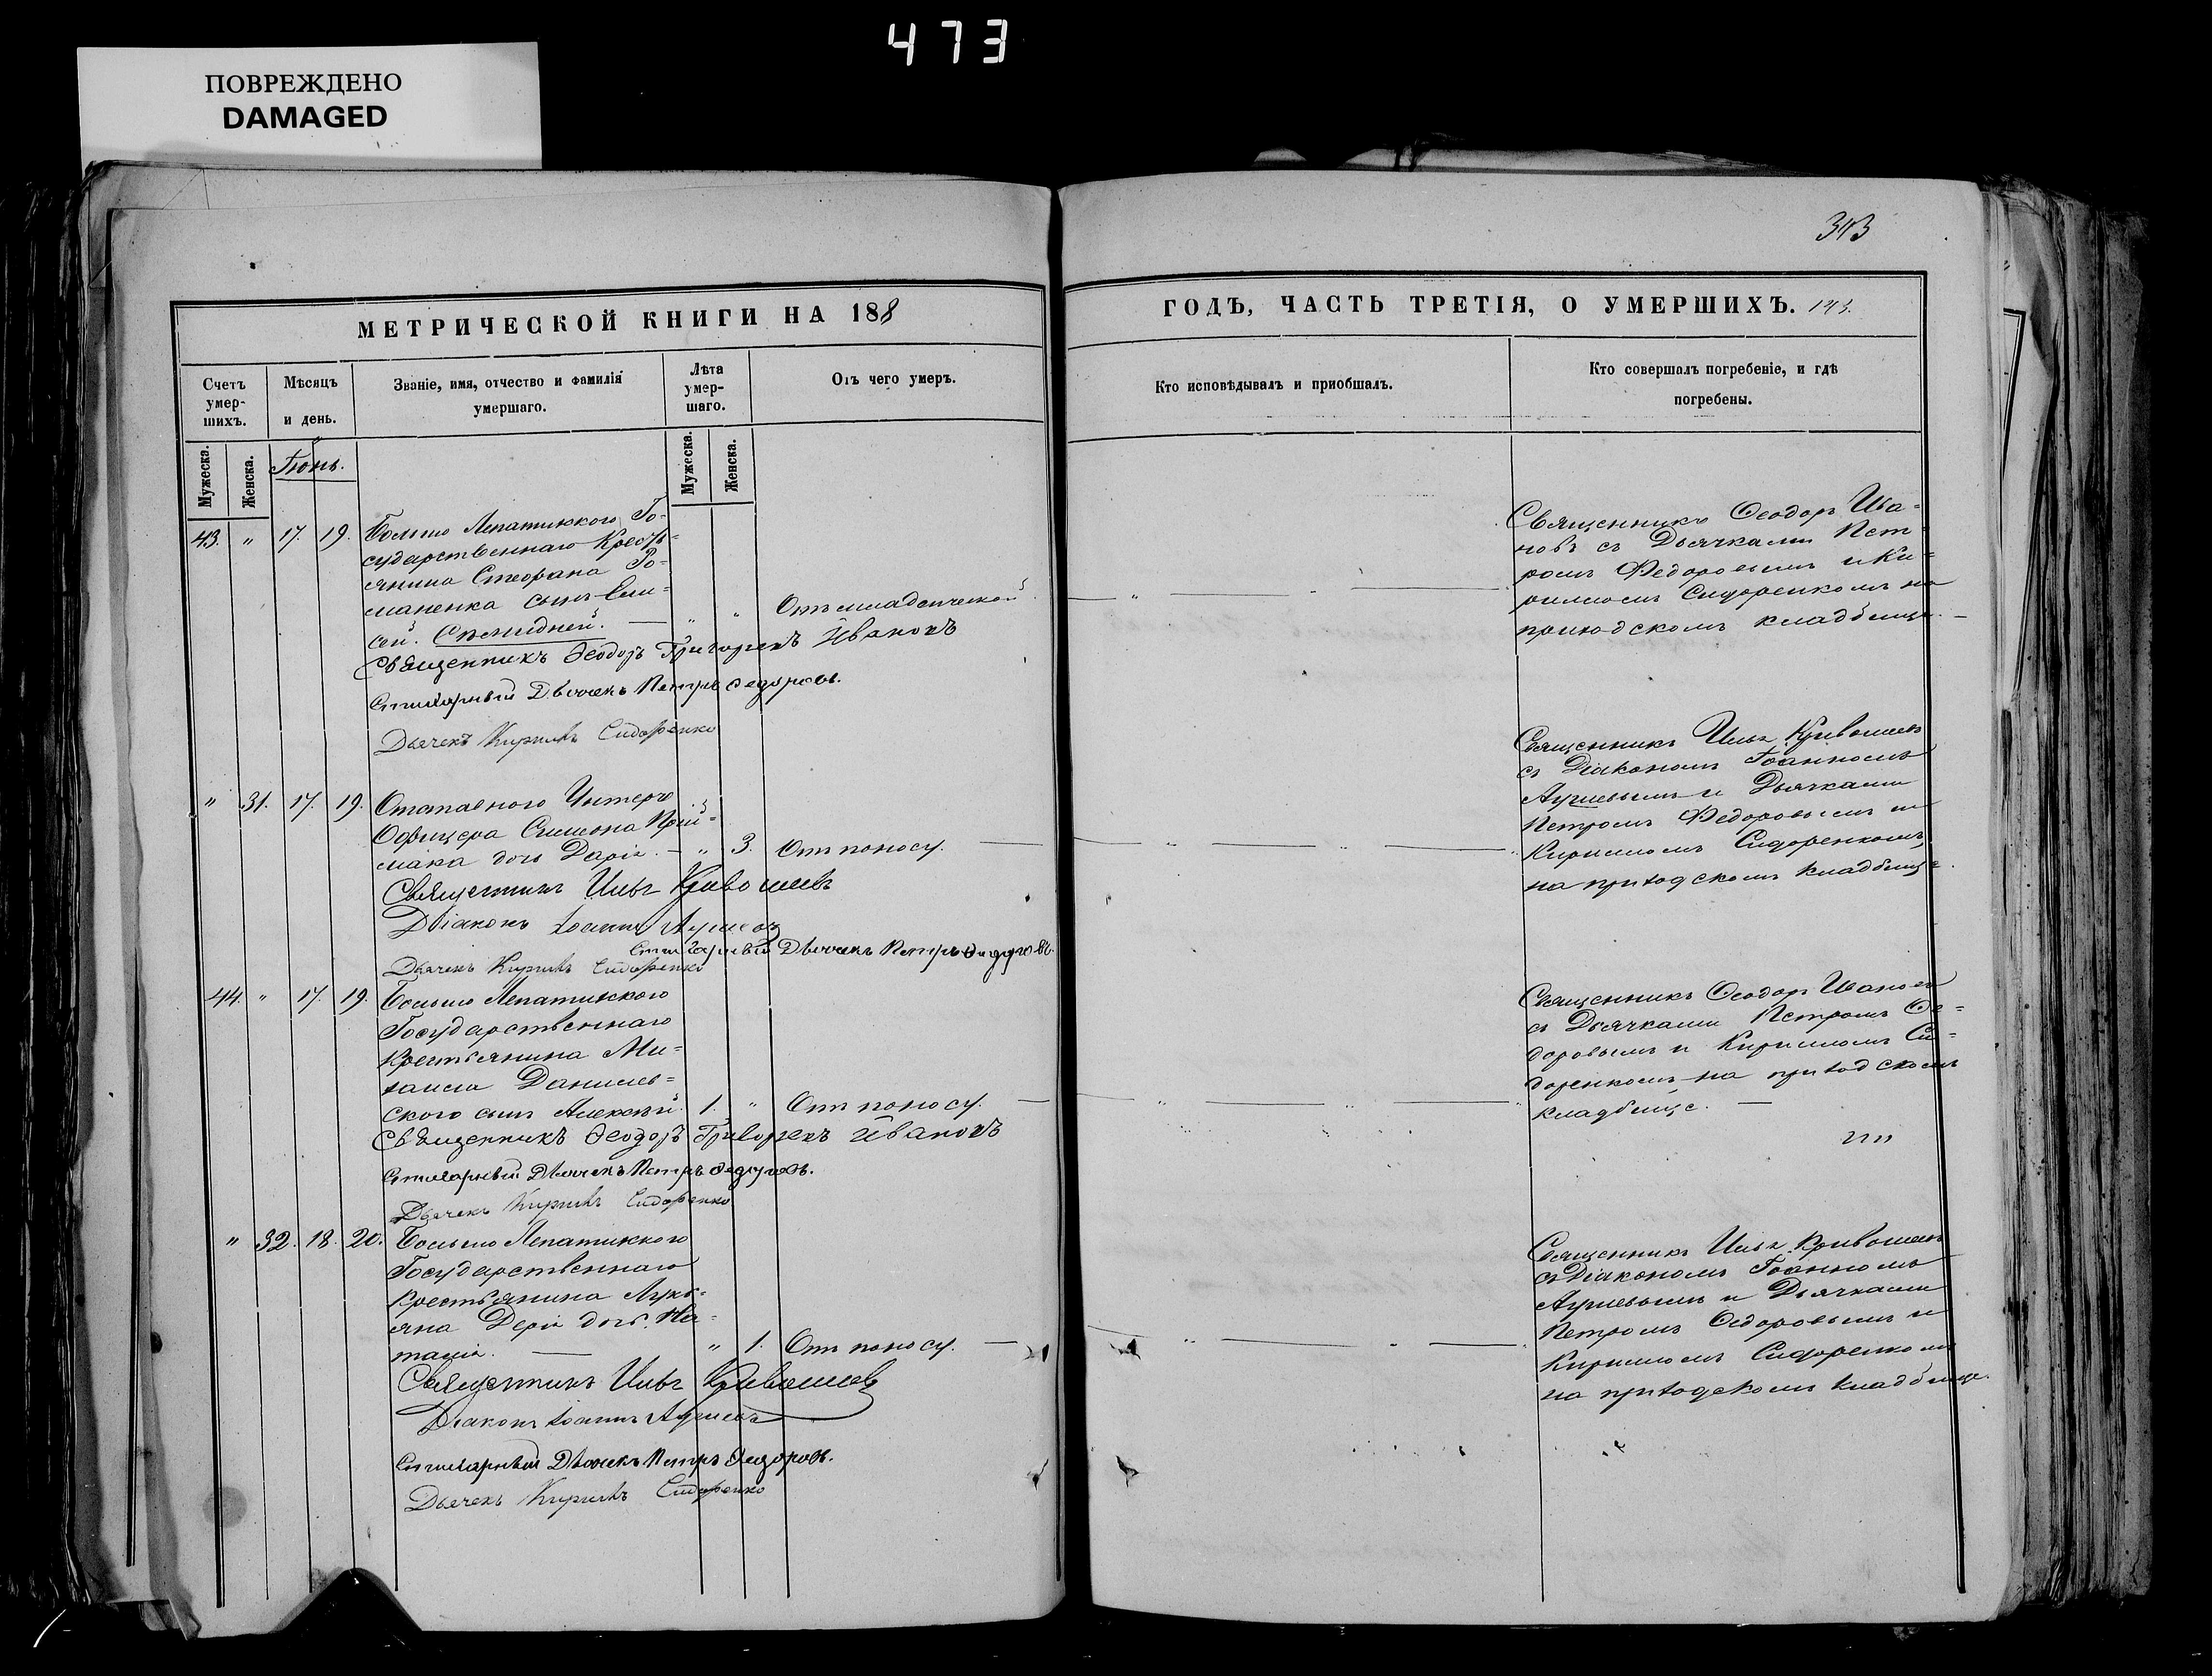 473
ПОВРЕЖДЕНО
DAMAGED
343
МЕТРИЧЕСКОЙ КНИГИ НА 188
ГОДЪ, ЧАСТЬ ТРЕТІЯ, О УМЕРШИХЪ. 143.
Счетъ умер-шихъ.
Мѣсяцъ и день.
Званіе, имя, отчество и фамилія умершаго.
Лѣта умер-шаго.
Отъ чего умеръ.
Кто исповѣдывалъ и пріобщалъ.
Кто совершалъ погребеніе, и гдѣ погребены.
Мужеска.
Женска.
Іюнь.
Мужеска.
Женска.
43. " 17. 19. Больше Лепатихкого Го-
сударственнаго Кресть-
янина Стефана Ро-
маненка сынъ Ели-
сей. " " Отъ младенческой
Священникъ Ѳеодоръ Григорьевъ Ивановъ
Стихарный Дьячекъ Петръ Федоровъ.
Дьячекъ Кириллъ Сидоренко
Священникъ Ѳеодоръ Ива-
новъ съ Дьячками Пет-
ромъ Федоровымъ и Ки-
рилломъ Сидоренкомъ на
приходскомъ кладбище.
" 31. 17. 19. Отставного Унтеръ
Офицера Симеона Прій-
мака дочь Дарія. " 3. Отъ поносу.
Священникъ Илья Кривошеевъ
Діаконъ Іоаннъ
Стихарный Дьячекъ Петръ Федоровъ.
Дьячекъ Кириллъ Сидоренко
Священникъ Илья Кривошеевъ
съ Діакономъ Іоанномъ
и Дьячками
Петромъ Федоровымъ и
Кирилломъ Сидоренкомъ,
на приходскомъ кладбище.
44. " 17. 19. Больше Лепатихского
Государственнаго
Крестьянина Ми-
хаила Данилев-
ского сынъ Алексѣй. 1. " Отъ поносу.
Священникъ Ѳеодоръ Григорьевъ Ивановъ
Стихарный Дьячекъ Петръ Федоровъ.
Дьячекъ Кириллъ Сидоренко
Священникъ Ѳеодоръ Ивановъ
съ Дьячками Петромъ Фе-
доровымъ и Кирилломъ Си-
доренкомъ на приходскомъ
кладбище.
" 32. 18. 20. Больше Лепатихкого
Государственнаго
Крестьянина Лукь-
яна дочь На-
талія. " 1. Отъ поносу.
Священникъ Илья Кривошеевъ
Діаконъ Іоаннъ
Стихарный Дьячекъ Петръ Федоровъ.
Дьячекъ Кириллъ Сидоренко
Священникъ Илья Кривошеевъ
съ Діакономъ Іоанномъ
и Дьячками
Петромъ Федоровымъ и
Кирилломъ Сидоренкомъ
на приходскомъ кладбище.